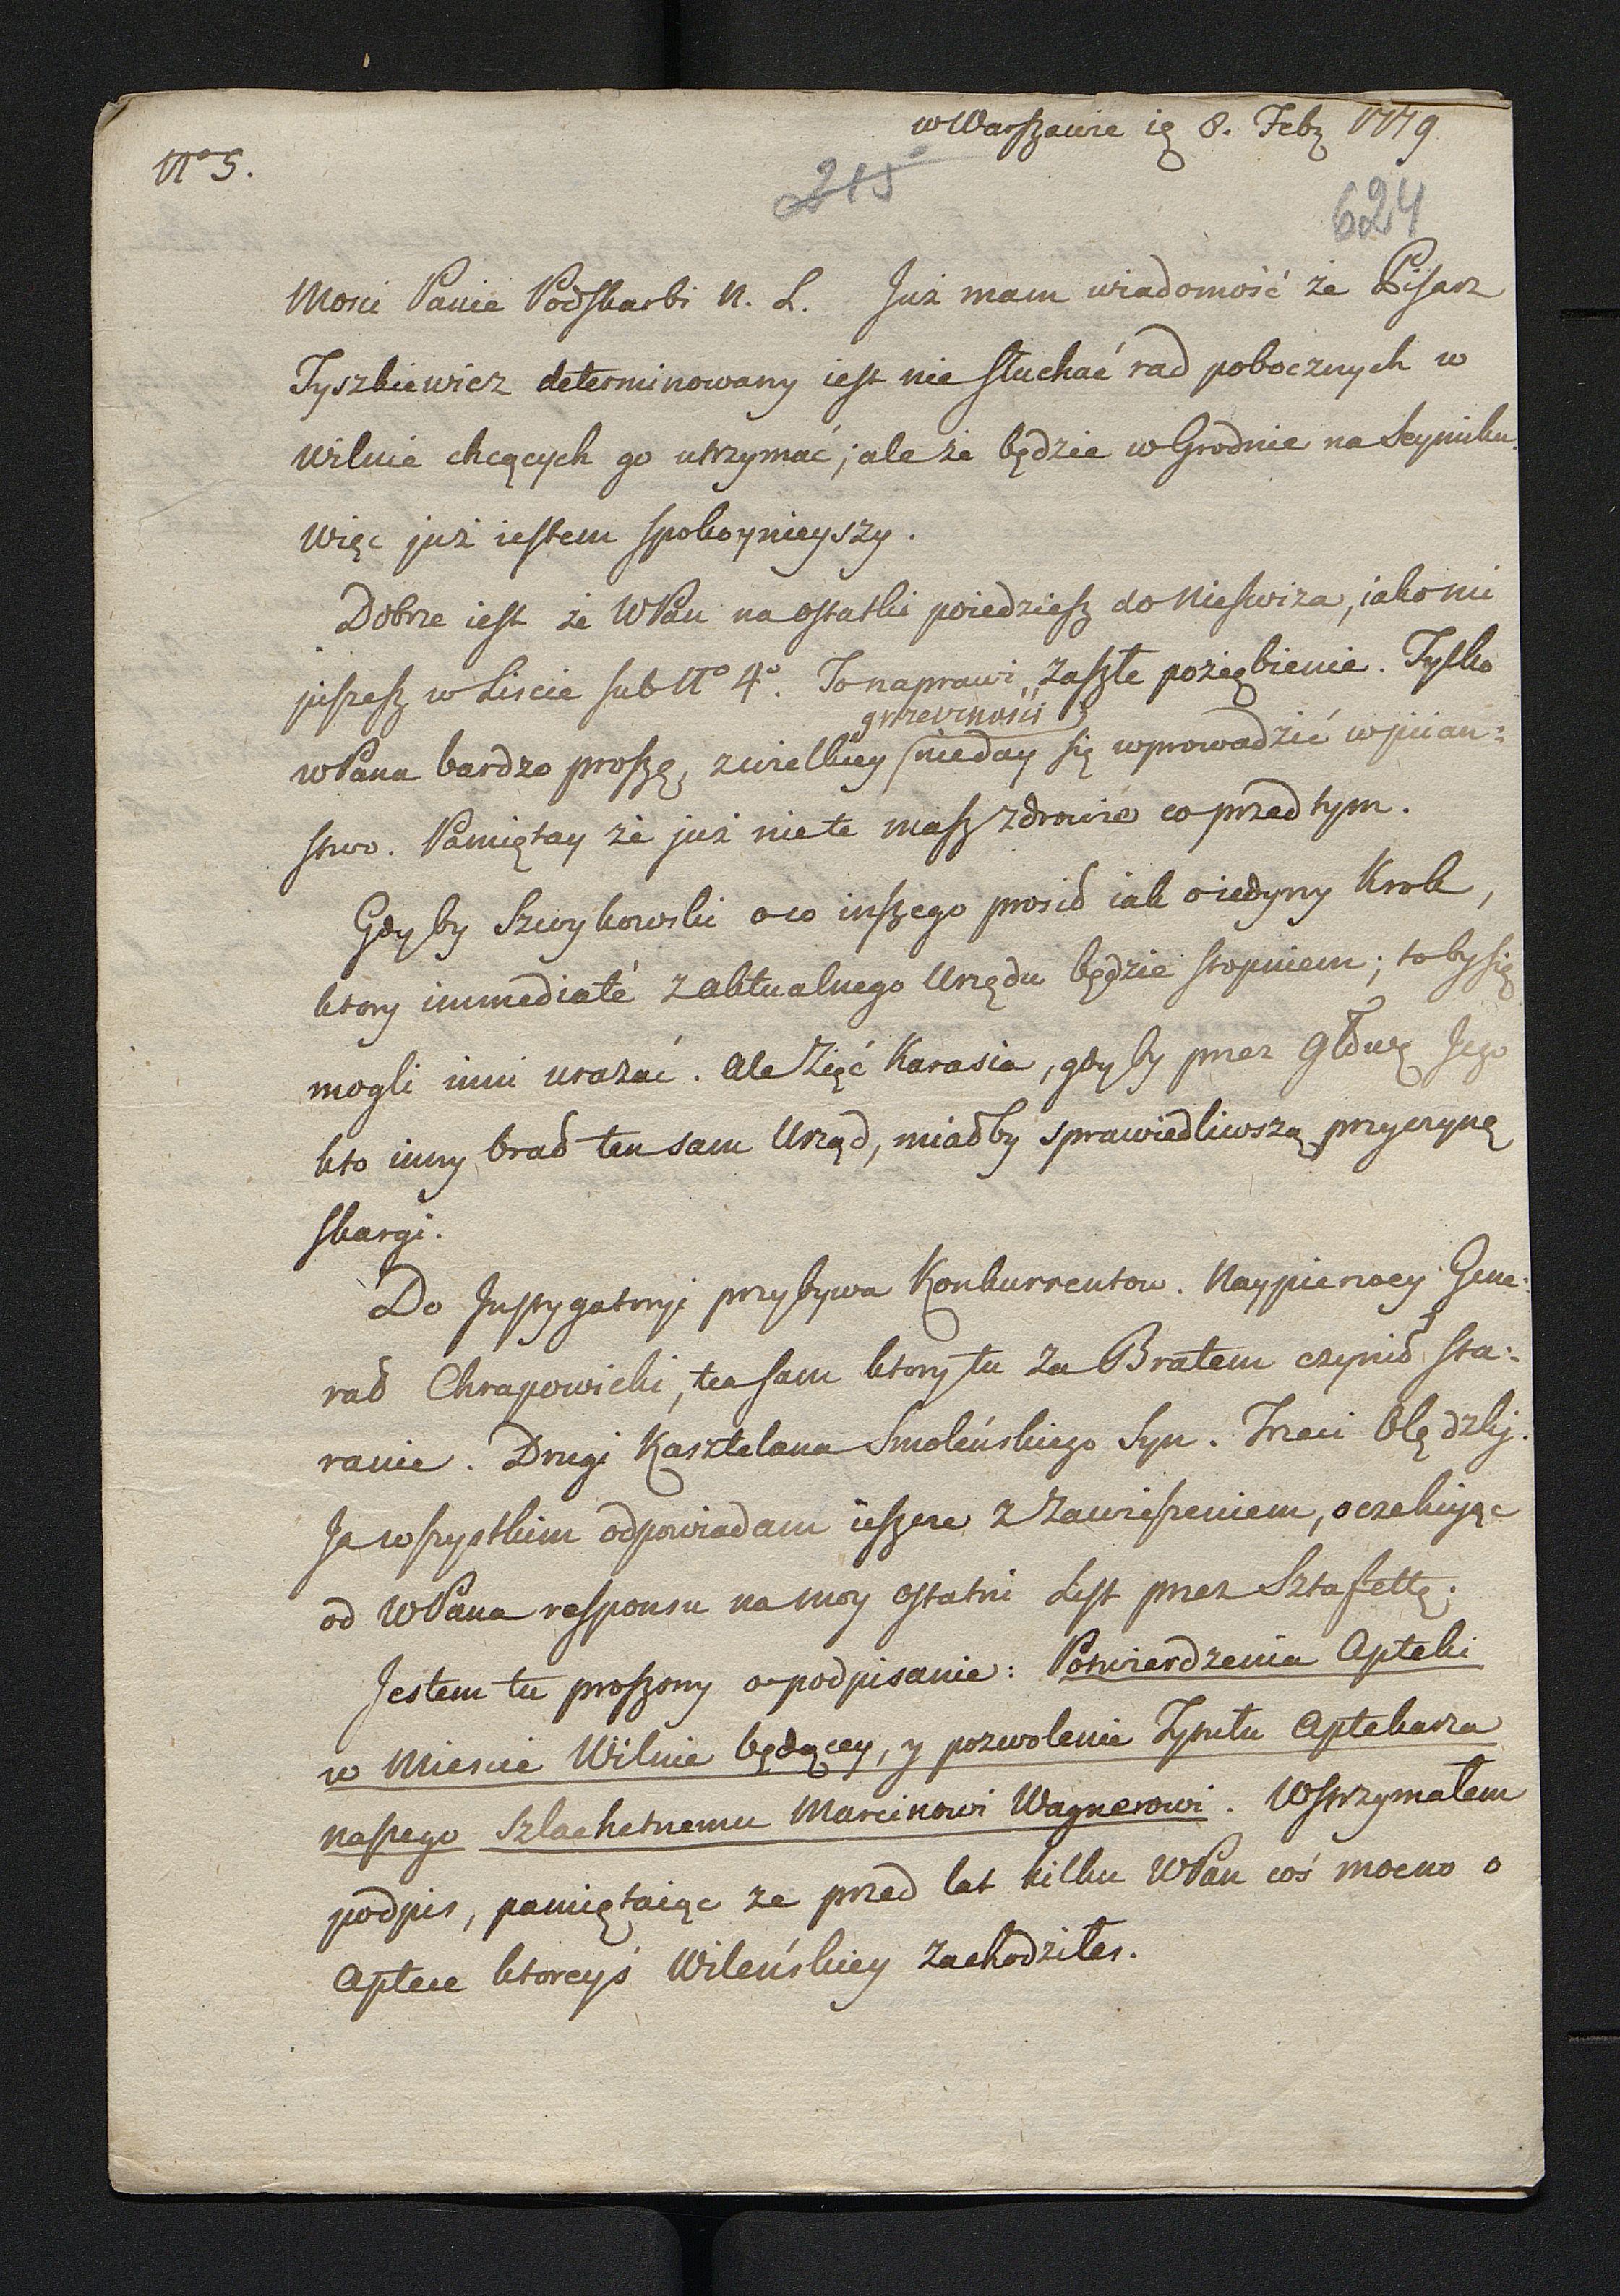 w Warszawie ię 8. Febr 1779
No 5.
215
624
Mosci Panie Podskarbi N. L. Już mam wiadomość że Pisarz
Tyszkiewicz determinowany iest nie słuchać rad pobocznych w
Wilnie chcących go utrzymać; ale że będzie w Grodnie na Seymiku.
Więc już iestem spokoynieyszy.
Dobrze iest że WPan na ostatki poiedziesz do Nieswiża, iako mi
piszesz w Liscie sub No 4o. To naprawi zaszłe poziębienie. Tylko
grzecznosci
WPana bardzo proszę, z wielkiey nieday się wprowadzić w pijan=
stwo. Pamiętay że już nie te masz zdrowie co przed tym.
Gdyby Szwykowski o co inszego prosił iak o iedyny Krok,
ktory immediaté z aktualnego Urzędu będzie stopniem; toby się
mogli inni urażać. Ale Zięć Karasia, gdyby przez głowę Jego
kto inny brał ten sam Urząd, miałby sprawiedliwszą przyczynę
skargi.
Do Instygatoryi przybywa Konkurrentow. Naypierwey Gene=
rał Chrapowicki, ten sam ktory tu za Bratem czynił sta=
ranie. Drugi Kasztelana Smoleńskiego Syn. Trzeci Olędzki.
Ja wszystkim odpowiadam ieszcze z zawieszeniem, oczekując
od WPana responsu na moy ostatni List przez Sztafettę.
Jestem tu proszony o podpisanie: Potwierdzenia Apteki
w Miescie Wilnie będącey, y pozwolenie Tytułu Aptekarza
naszego szlachetnemu Marcinowi Wagnerowi. Wstrzymałem
podpis, pamiętaiąc że przed lat kilku WPan coś mocno o
Aptece ktoreyś Wileńskiey zachodziłes.